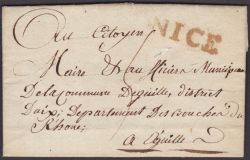 Au Citoyen NICE
Maire & aux officiers Municipaux
De la Commune Deguille, district
Daix, Departement Des Bouches du
Rhône;
a Eguille